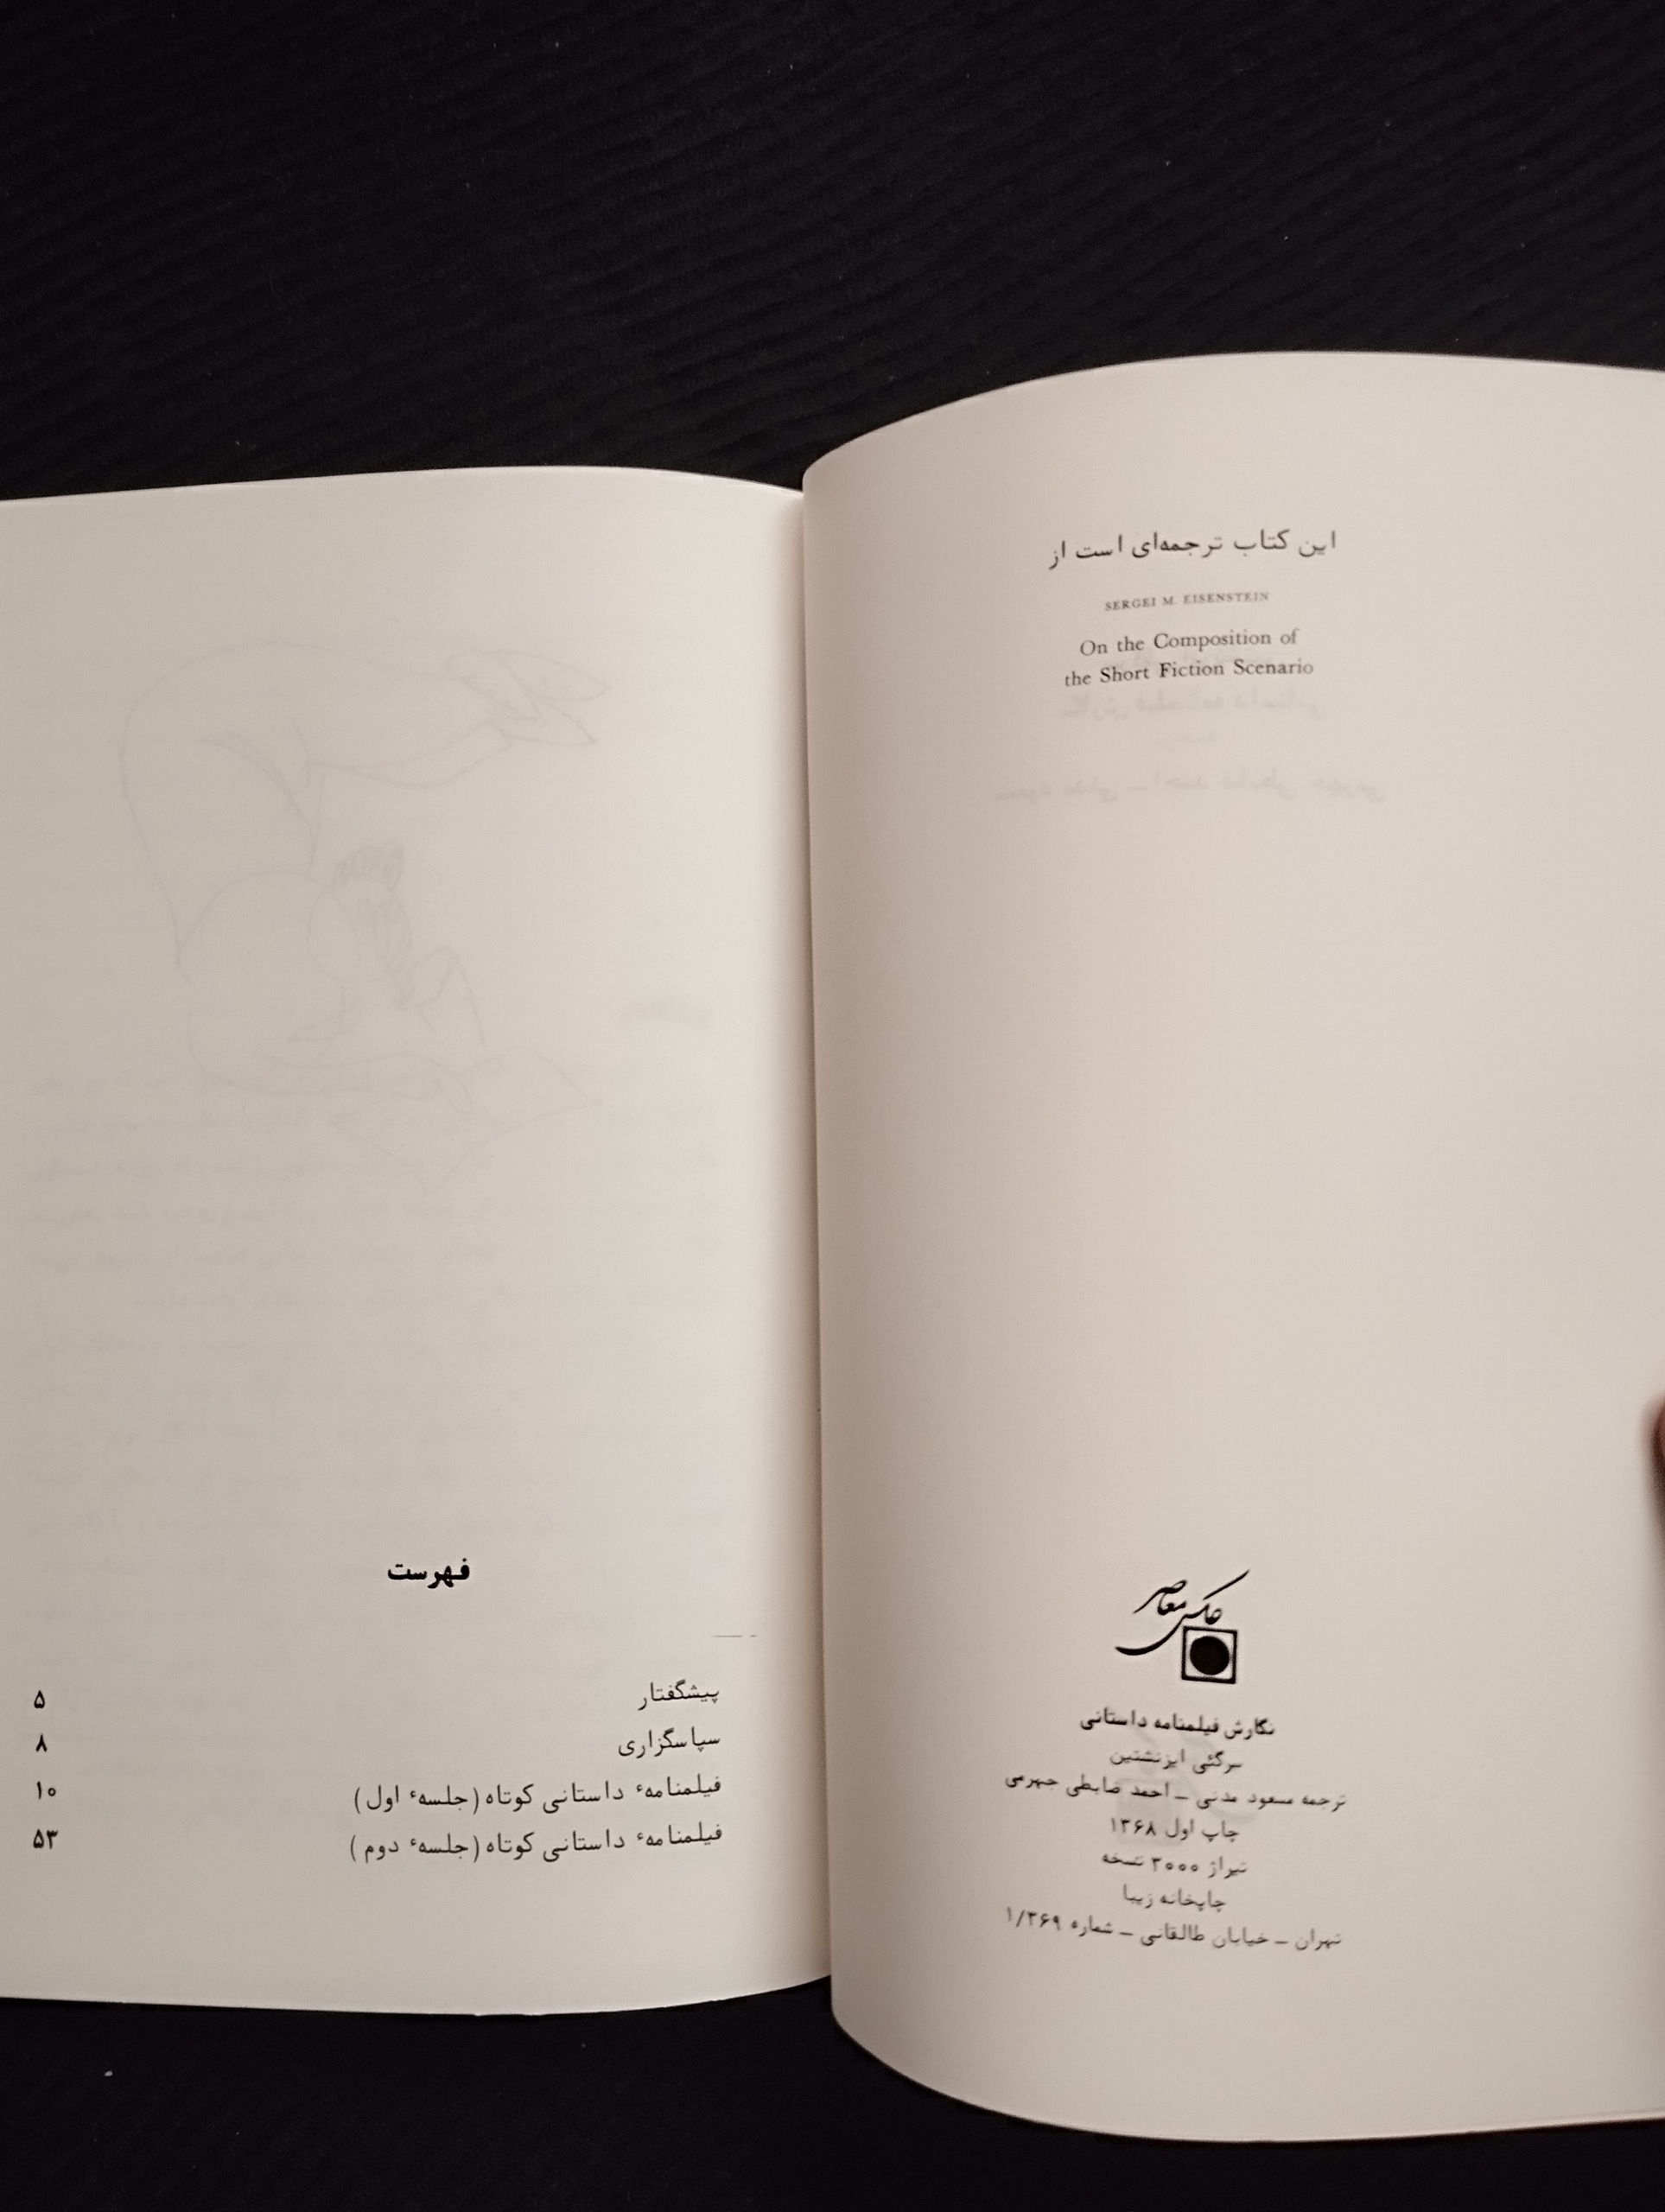 این کتاب ترجمه‌ای است از
SERGEI M. EISENSTEIN
On the Composition of
the Short Fiction Scenario
عکس معاصر
نگارش فیلمنامه داستانی
سرگئی ایزنشتین
ترجمه مسعود مدنی ــ احمد ضابطی جهرمی
چاپ اول ۱۳۶۸
تیراژ ۳۰۰۰ نسخه
چاپخانه زیبا
تهران ــ خیابان طالقانی ــ شماره ۱/۳۶۹
فهرست
پیشگفتار ۵
سپاسگزاری ۸
فیلمنامهٔ داستانی کوتاه (جلسهٔ اول) ۱۰
فیلمنامهٔ داستانی کوتاه (جلسهٔ دوم) ۵۳